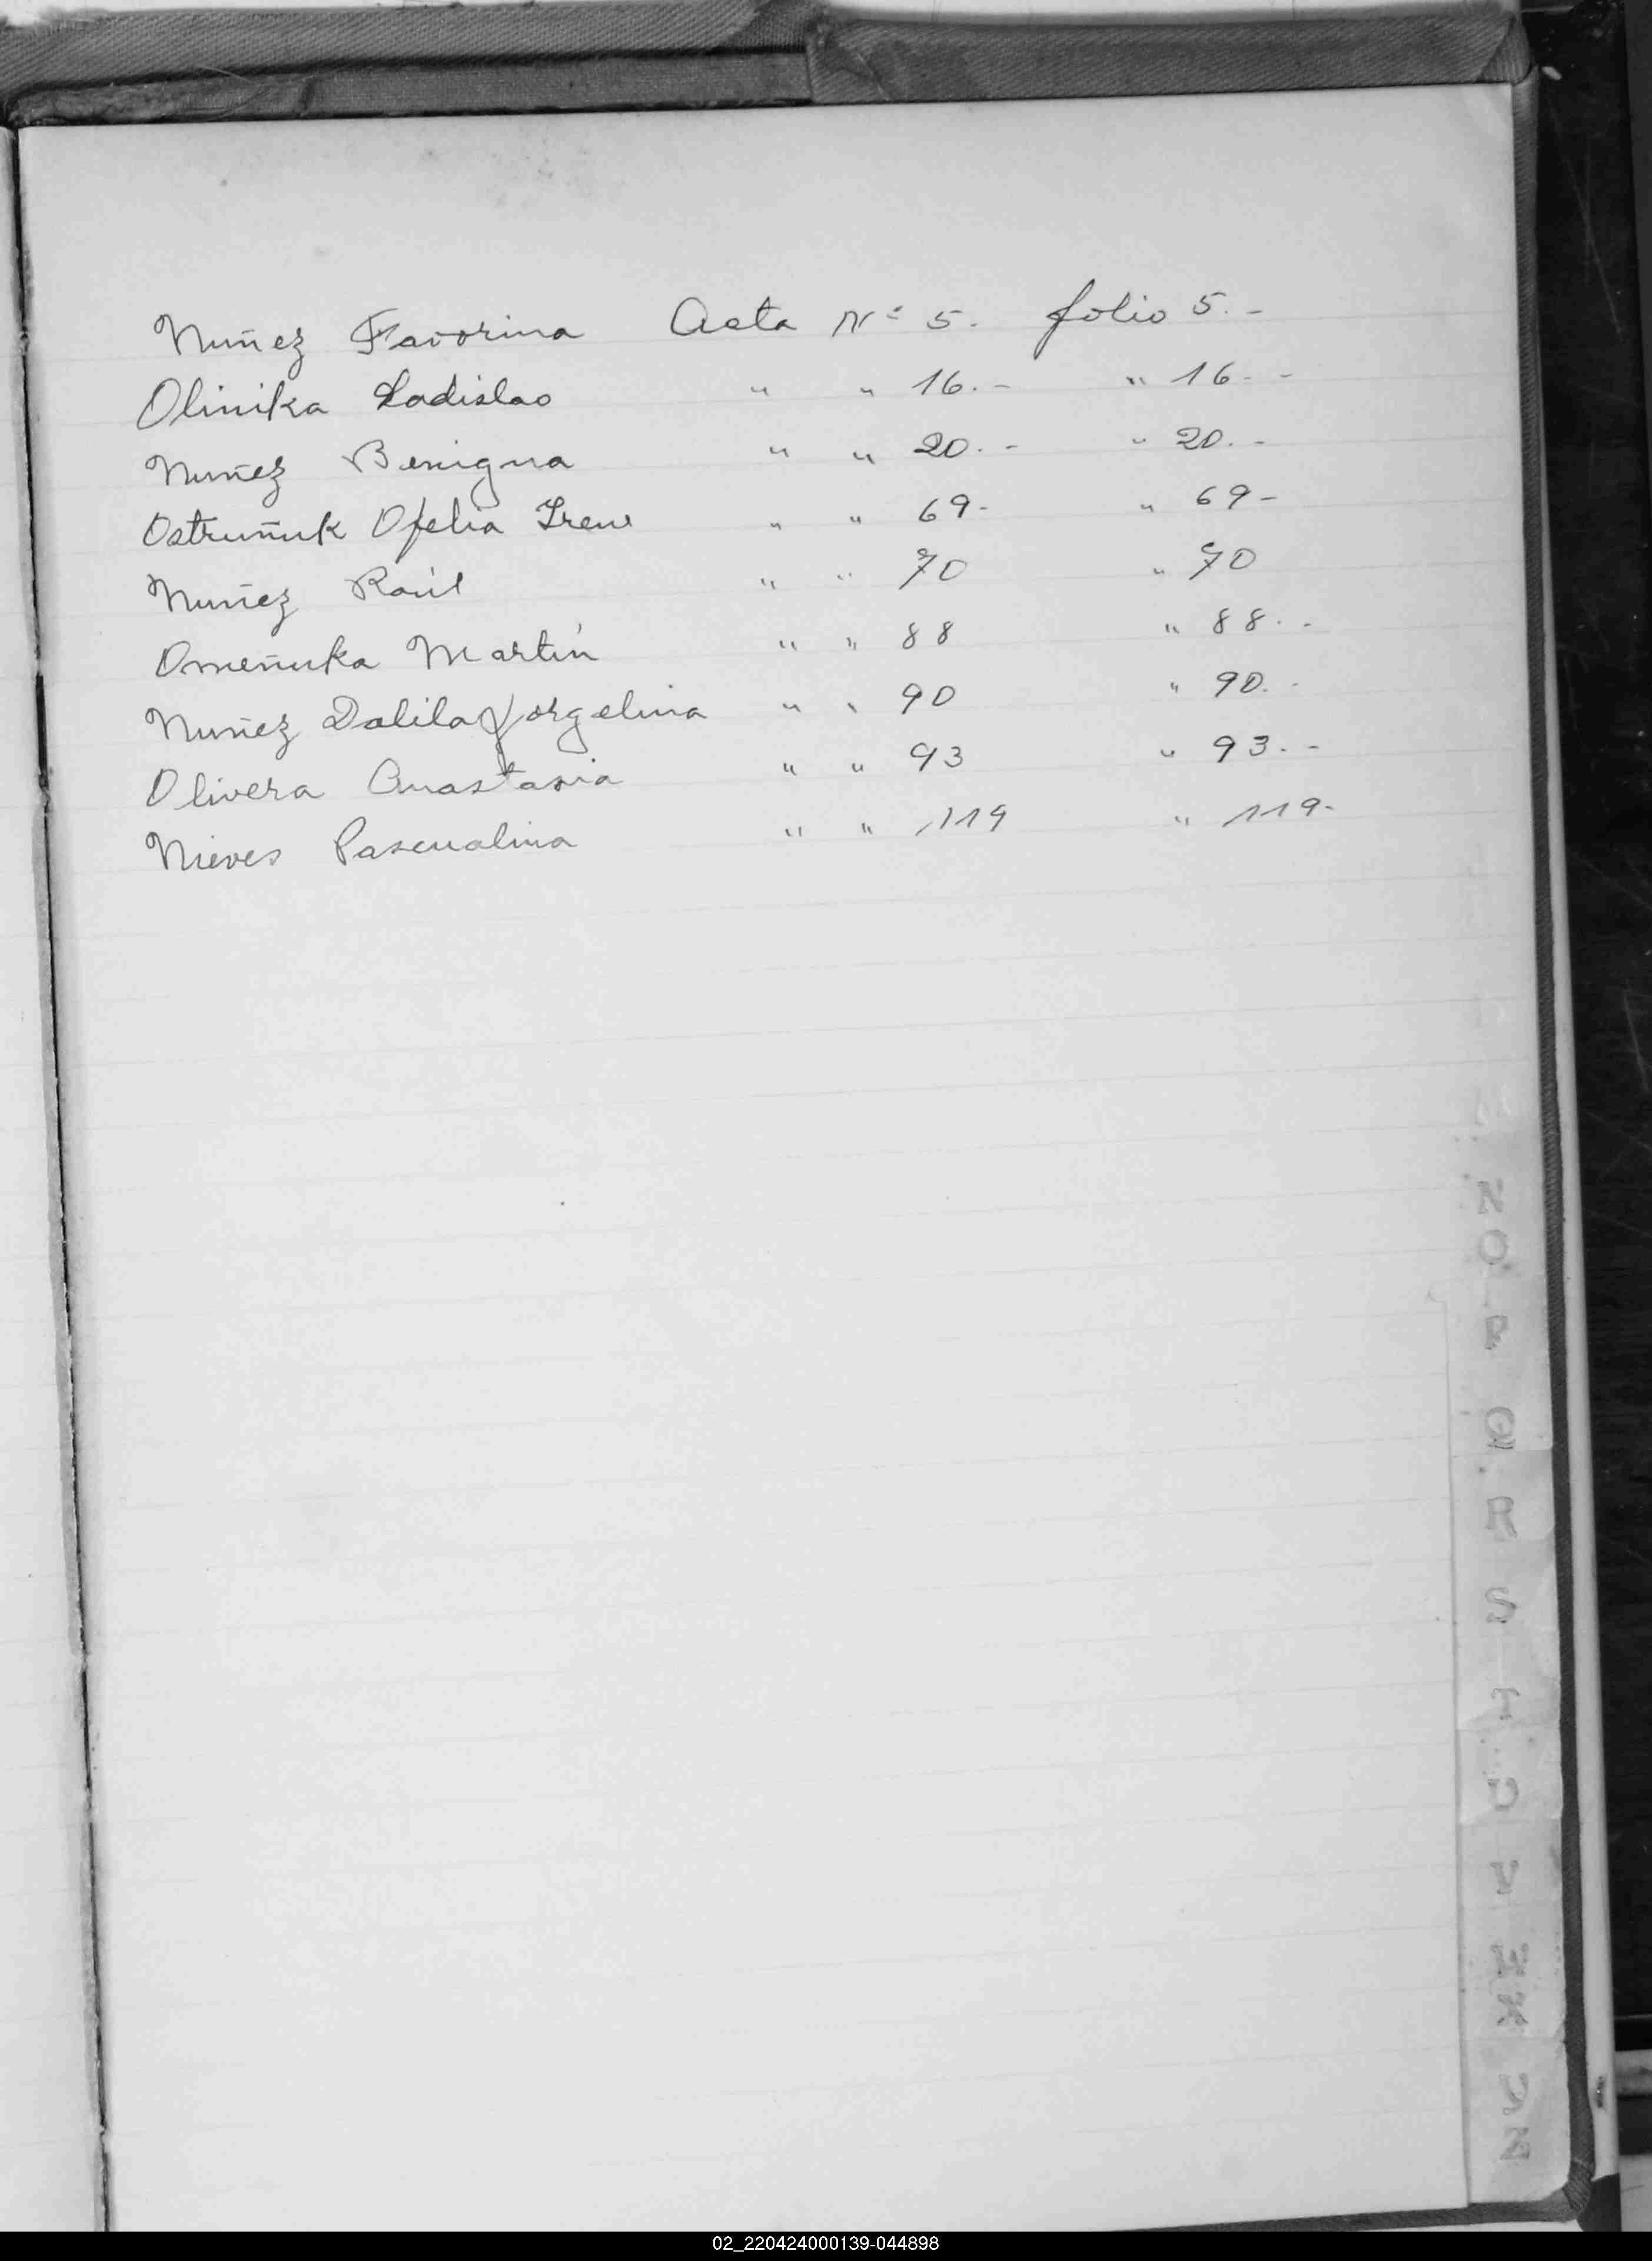 Nuñez Favorina Acta Nº 5. folio 5.-
Olinika Ladislao " " 16.- " 16.-
Nuñez Benigna " " 20.- " 20.-
Ostruñuk Ofelia Irene " " 69- " 69-
Nuñez Raúl " " 70 " 70
Omeñuka Martín " " 88 " 88.-
Nuñez Dalila Jorgelina " " 90 " 90.-
Olivera Anastasia " " 93 " 93.-
Nieves Pascualina " " 119 " 119-
N
O
P
Q
R
S
02_220424000139-044898